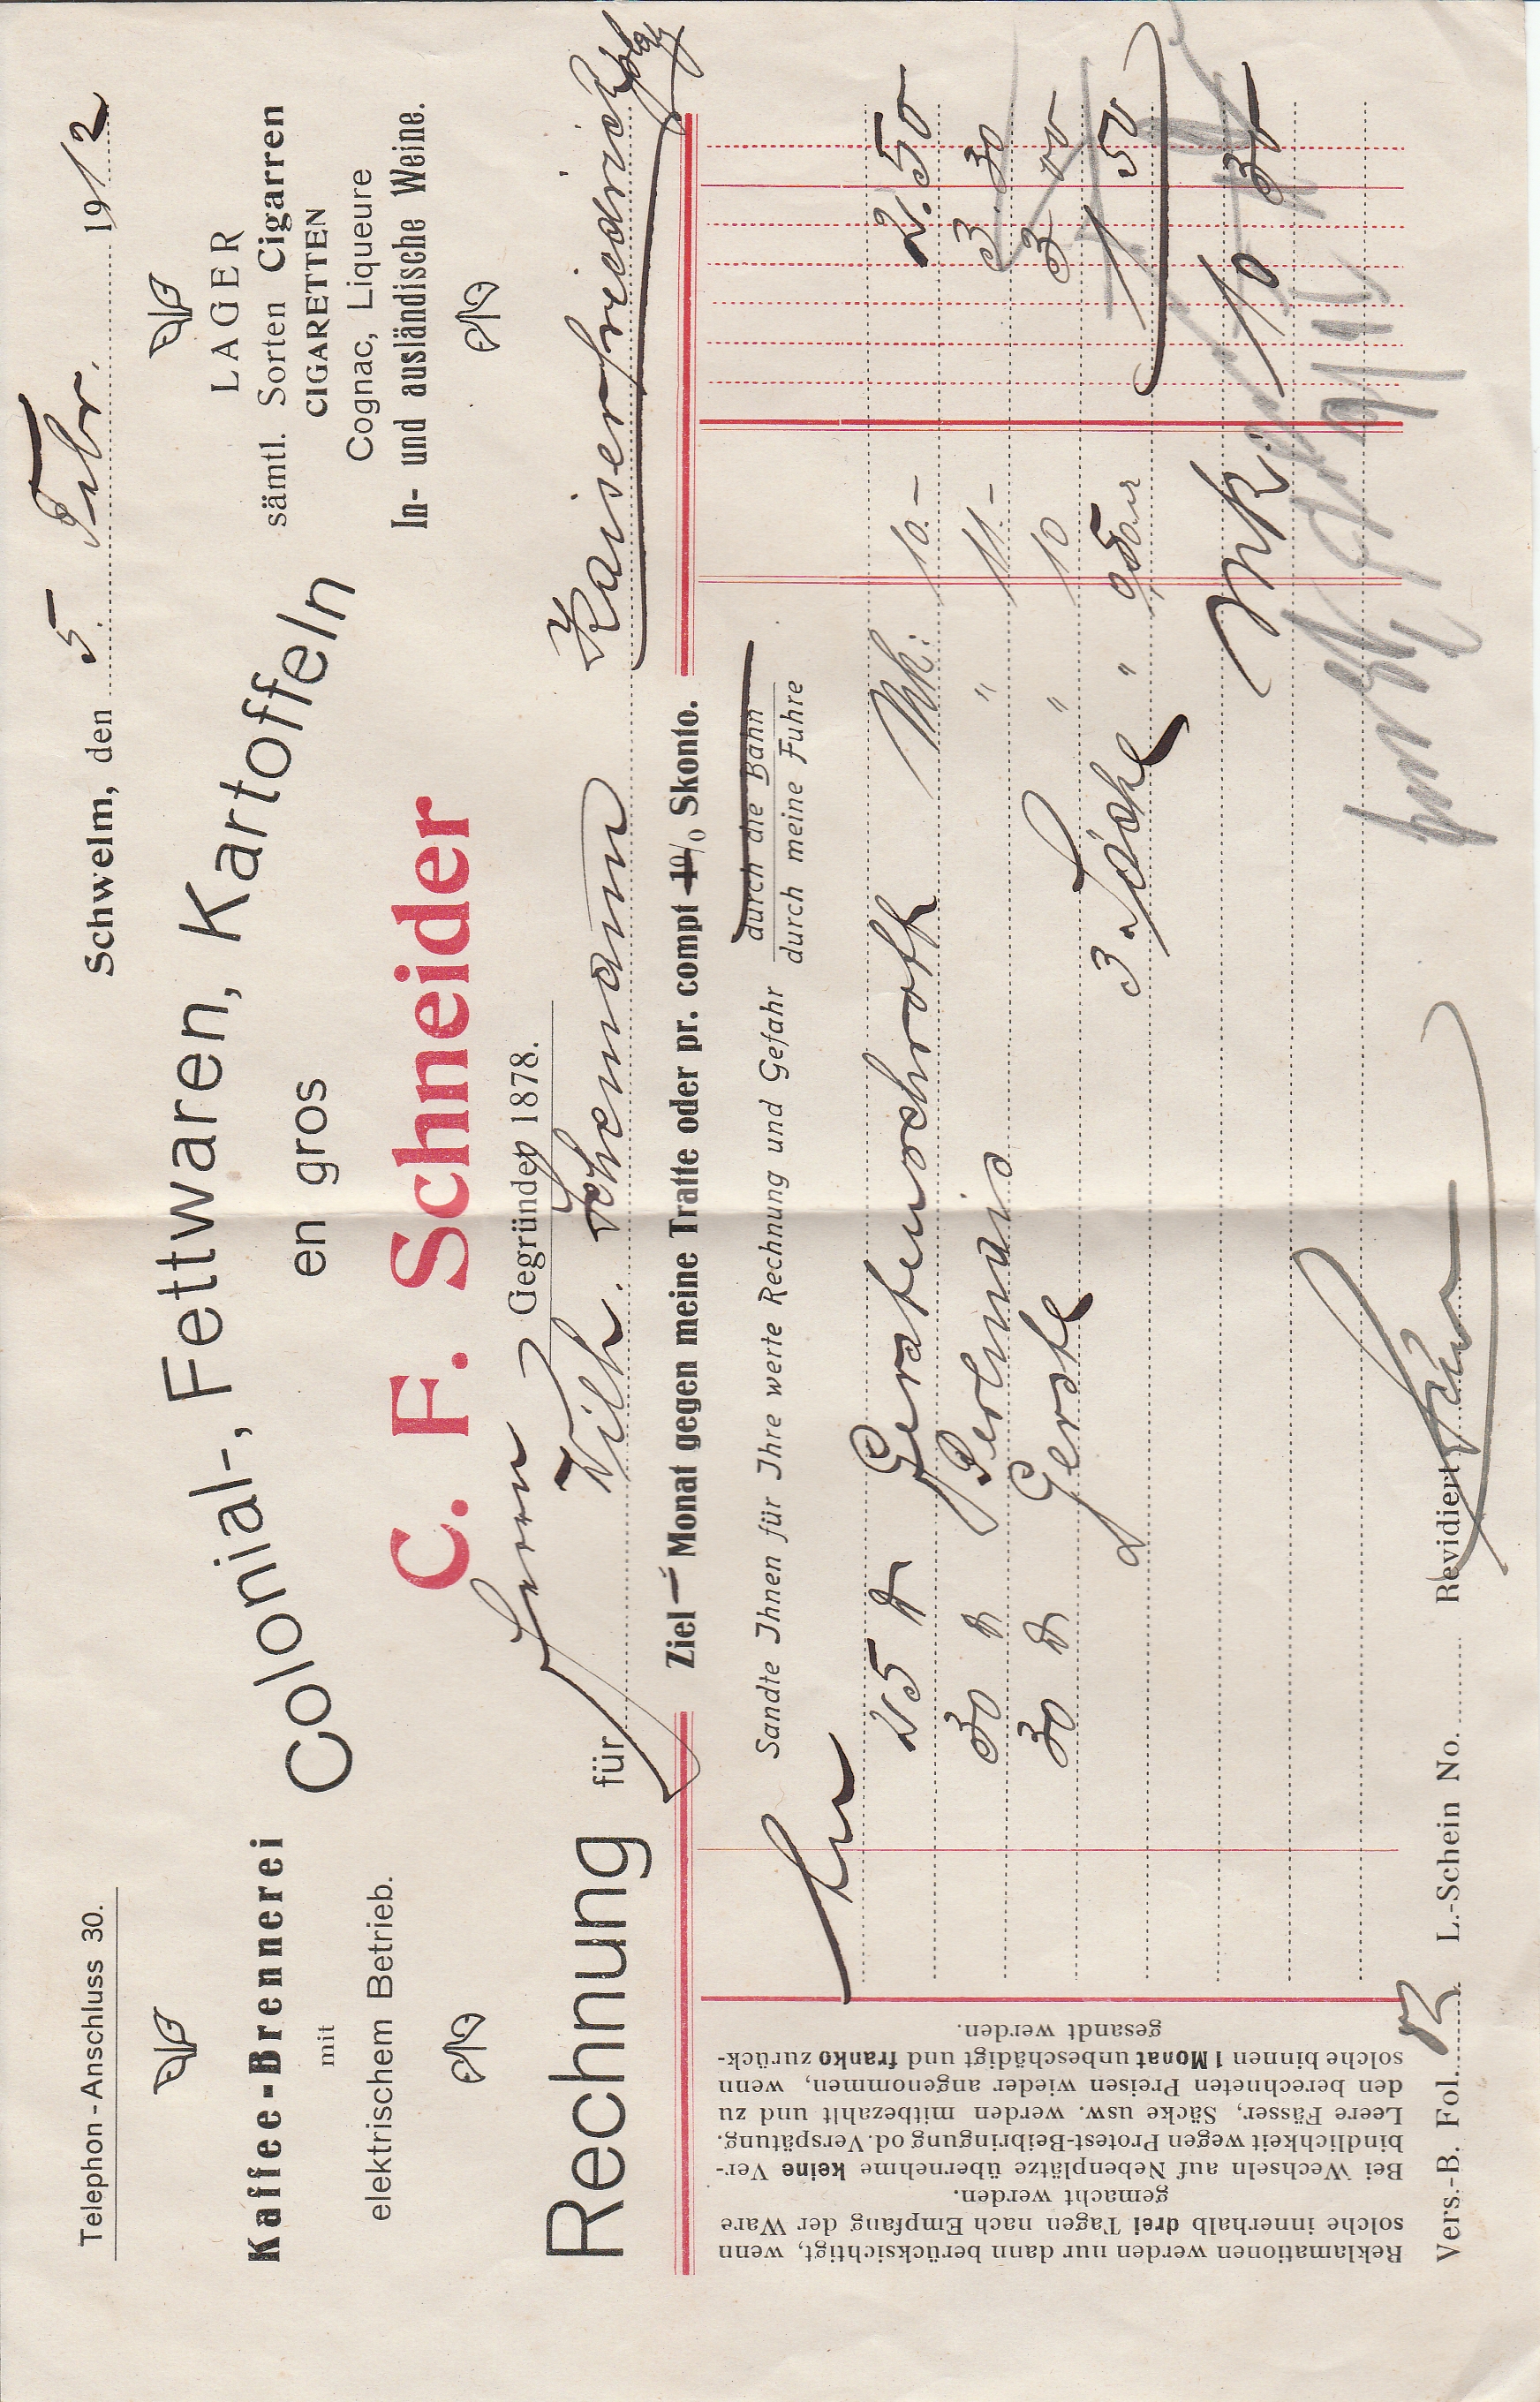 Telephon-Anschluss 30.
Schwelm, den 5. Febr. 1912
Kaffee-Brennerei
mit
elektrischem Betrieb.
Colonial-, Fettwaren, Kartoffeln
en gros
C. F. Schneider
Gegründet 1878.
LAGER
sämtl. Sorten Cigarren
CIGARETTEN
Cognac, Liqueure
In- und ausländische Weine.
Rechnung für Herrn
Wilh. Schemann Kaiserfriedrich
Ziel — Monat gegen meine Tratte oder pr. compt 1% Skonto.
Sandte Ihnen für Ihre werte Rechnung und Gefahr
durch die Bahn
durch meine Fuhre
25 ℔ Gerstenschroth Mk. 10.- 2.50
30 ℔ Perlmais " 11.- 3.30
30 ℔ Gerste " 10 3 00
3 Säcke " 1 50
Mk. 10 30
Reklamationen werden nur dann berücksichtigt, wenn
solche innerhalb drei Tagen nach Empfang der Ware
gemacht werden.
Bei Wechseln auf Nebenplätze übernehme keine Ver-
bindlichkeit wegen Protest-Beibringung od. Verspätung.
Leere Fässer, Säcke usw. werden mitbezahlt und zu
den berechneten Preisen wieder angenommen, wenn
solche binnen 1 Monat unbeschädigt und franko zurück-
gesandt werden.
Vers.-B. Fol. L.-Schein No. Revidiert